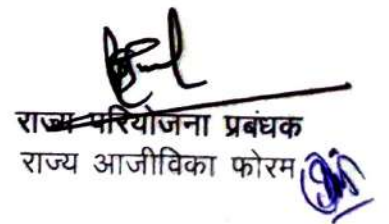 राज्य परियोजना प्रबंधक
राज्य आजीविका फोरम